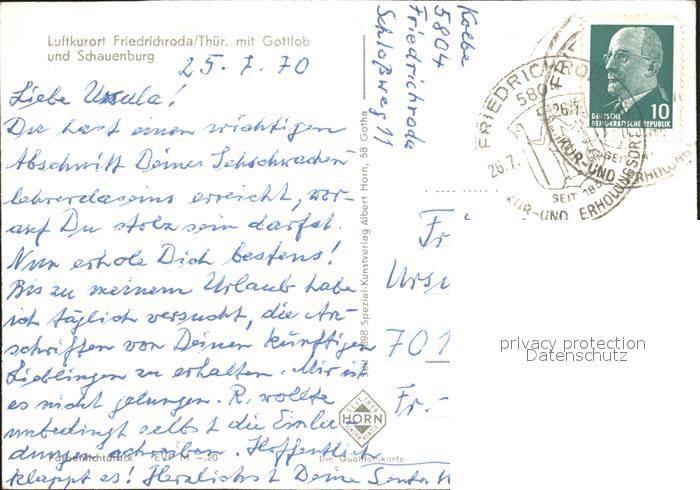 Luftkurort Friedrichroda/Thür. mit Gottlob
und Schauenburg
25.7.70
Liebe Ursula!
Du hast einen wichtigen
Abschnitt Deines Sehschwachen-
lehrerdaseins erreicht, wor-
auf Du stolz sein darfst.
Nun erhole Dich bestens!
Bis zu meinem Urlaub habe
ich täglich versucht, die An-
schriften von Deinen künftigen
Lieblingen zu erhalten. Mir ist
es nicht gelungen. R. wollte
unbedingt selbst die Einla-
dungen schreiben. Hoffentlich
klappt es! Herzlichst Deine
EVP M -.20
Die Qualitätskarte
Kolbe
5804
Friedrichroda
Schloßweg 11
1898 Spezial-Kunstverlag Albert Horn, 58 Gotha
SEIT 1898
HORN
FRIEDRICHRODA
5804
26.7.
SEIT 183
KUR-UND ERHOLUNGSORT
DEUTSCHE
DEMOKRATISCHE REPUBLIK
10
Fr
Ursu
701
Fr.-
privacy protection
Datenschutz